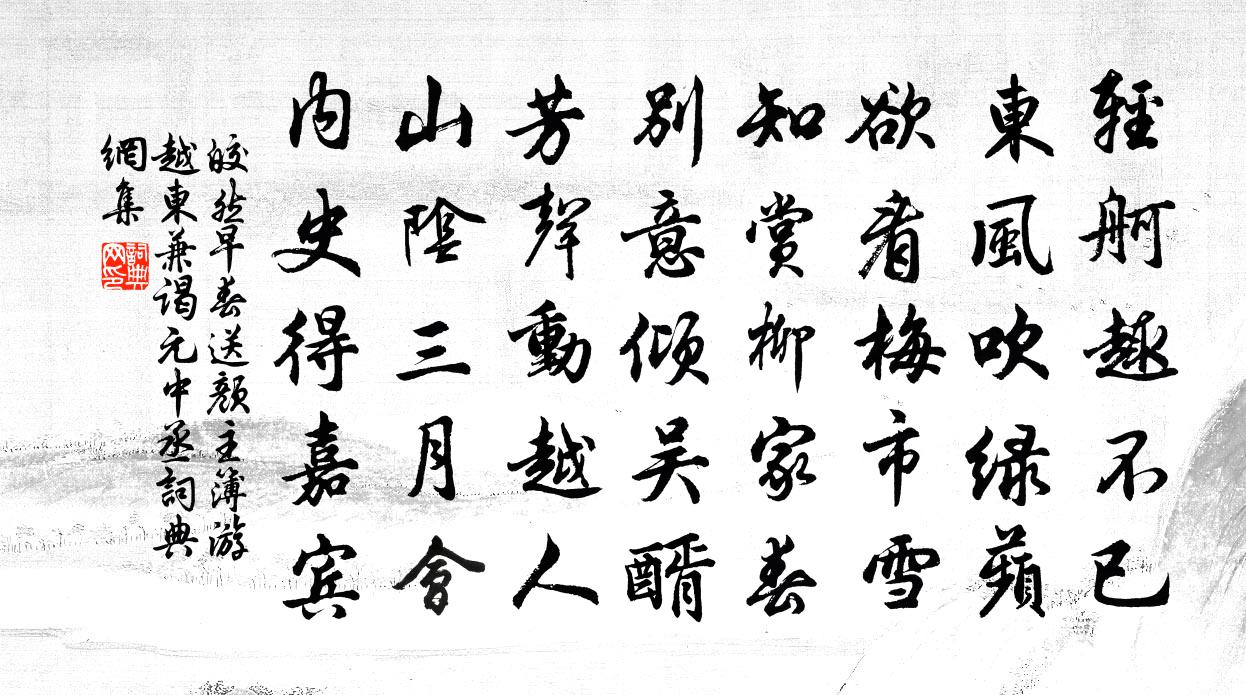 輕舸趣不已
東風吹綠蘋
欲看梅市雪
知賞柳家春
別意傾吴醑
芳聲動越人
山陰三月會
内史得嘉賓
皎然早春送顔主簿游
越東兼謁元中丞詞典
網集
詞典網印